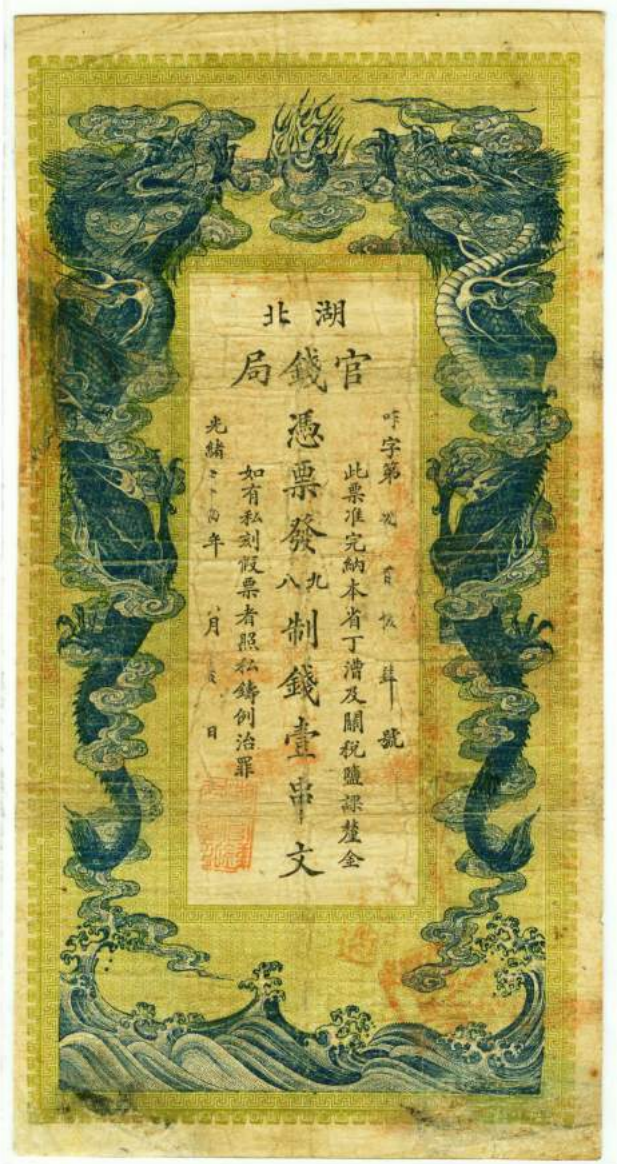 湖北
官錢局
咋字第 百 號
此票准完納本省丁漕及關稅鹽課釐金
憑票發九八制錢壹串文
如有私刻假票者照私鑄例治罪
光緒 年 月 日